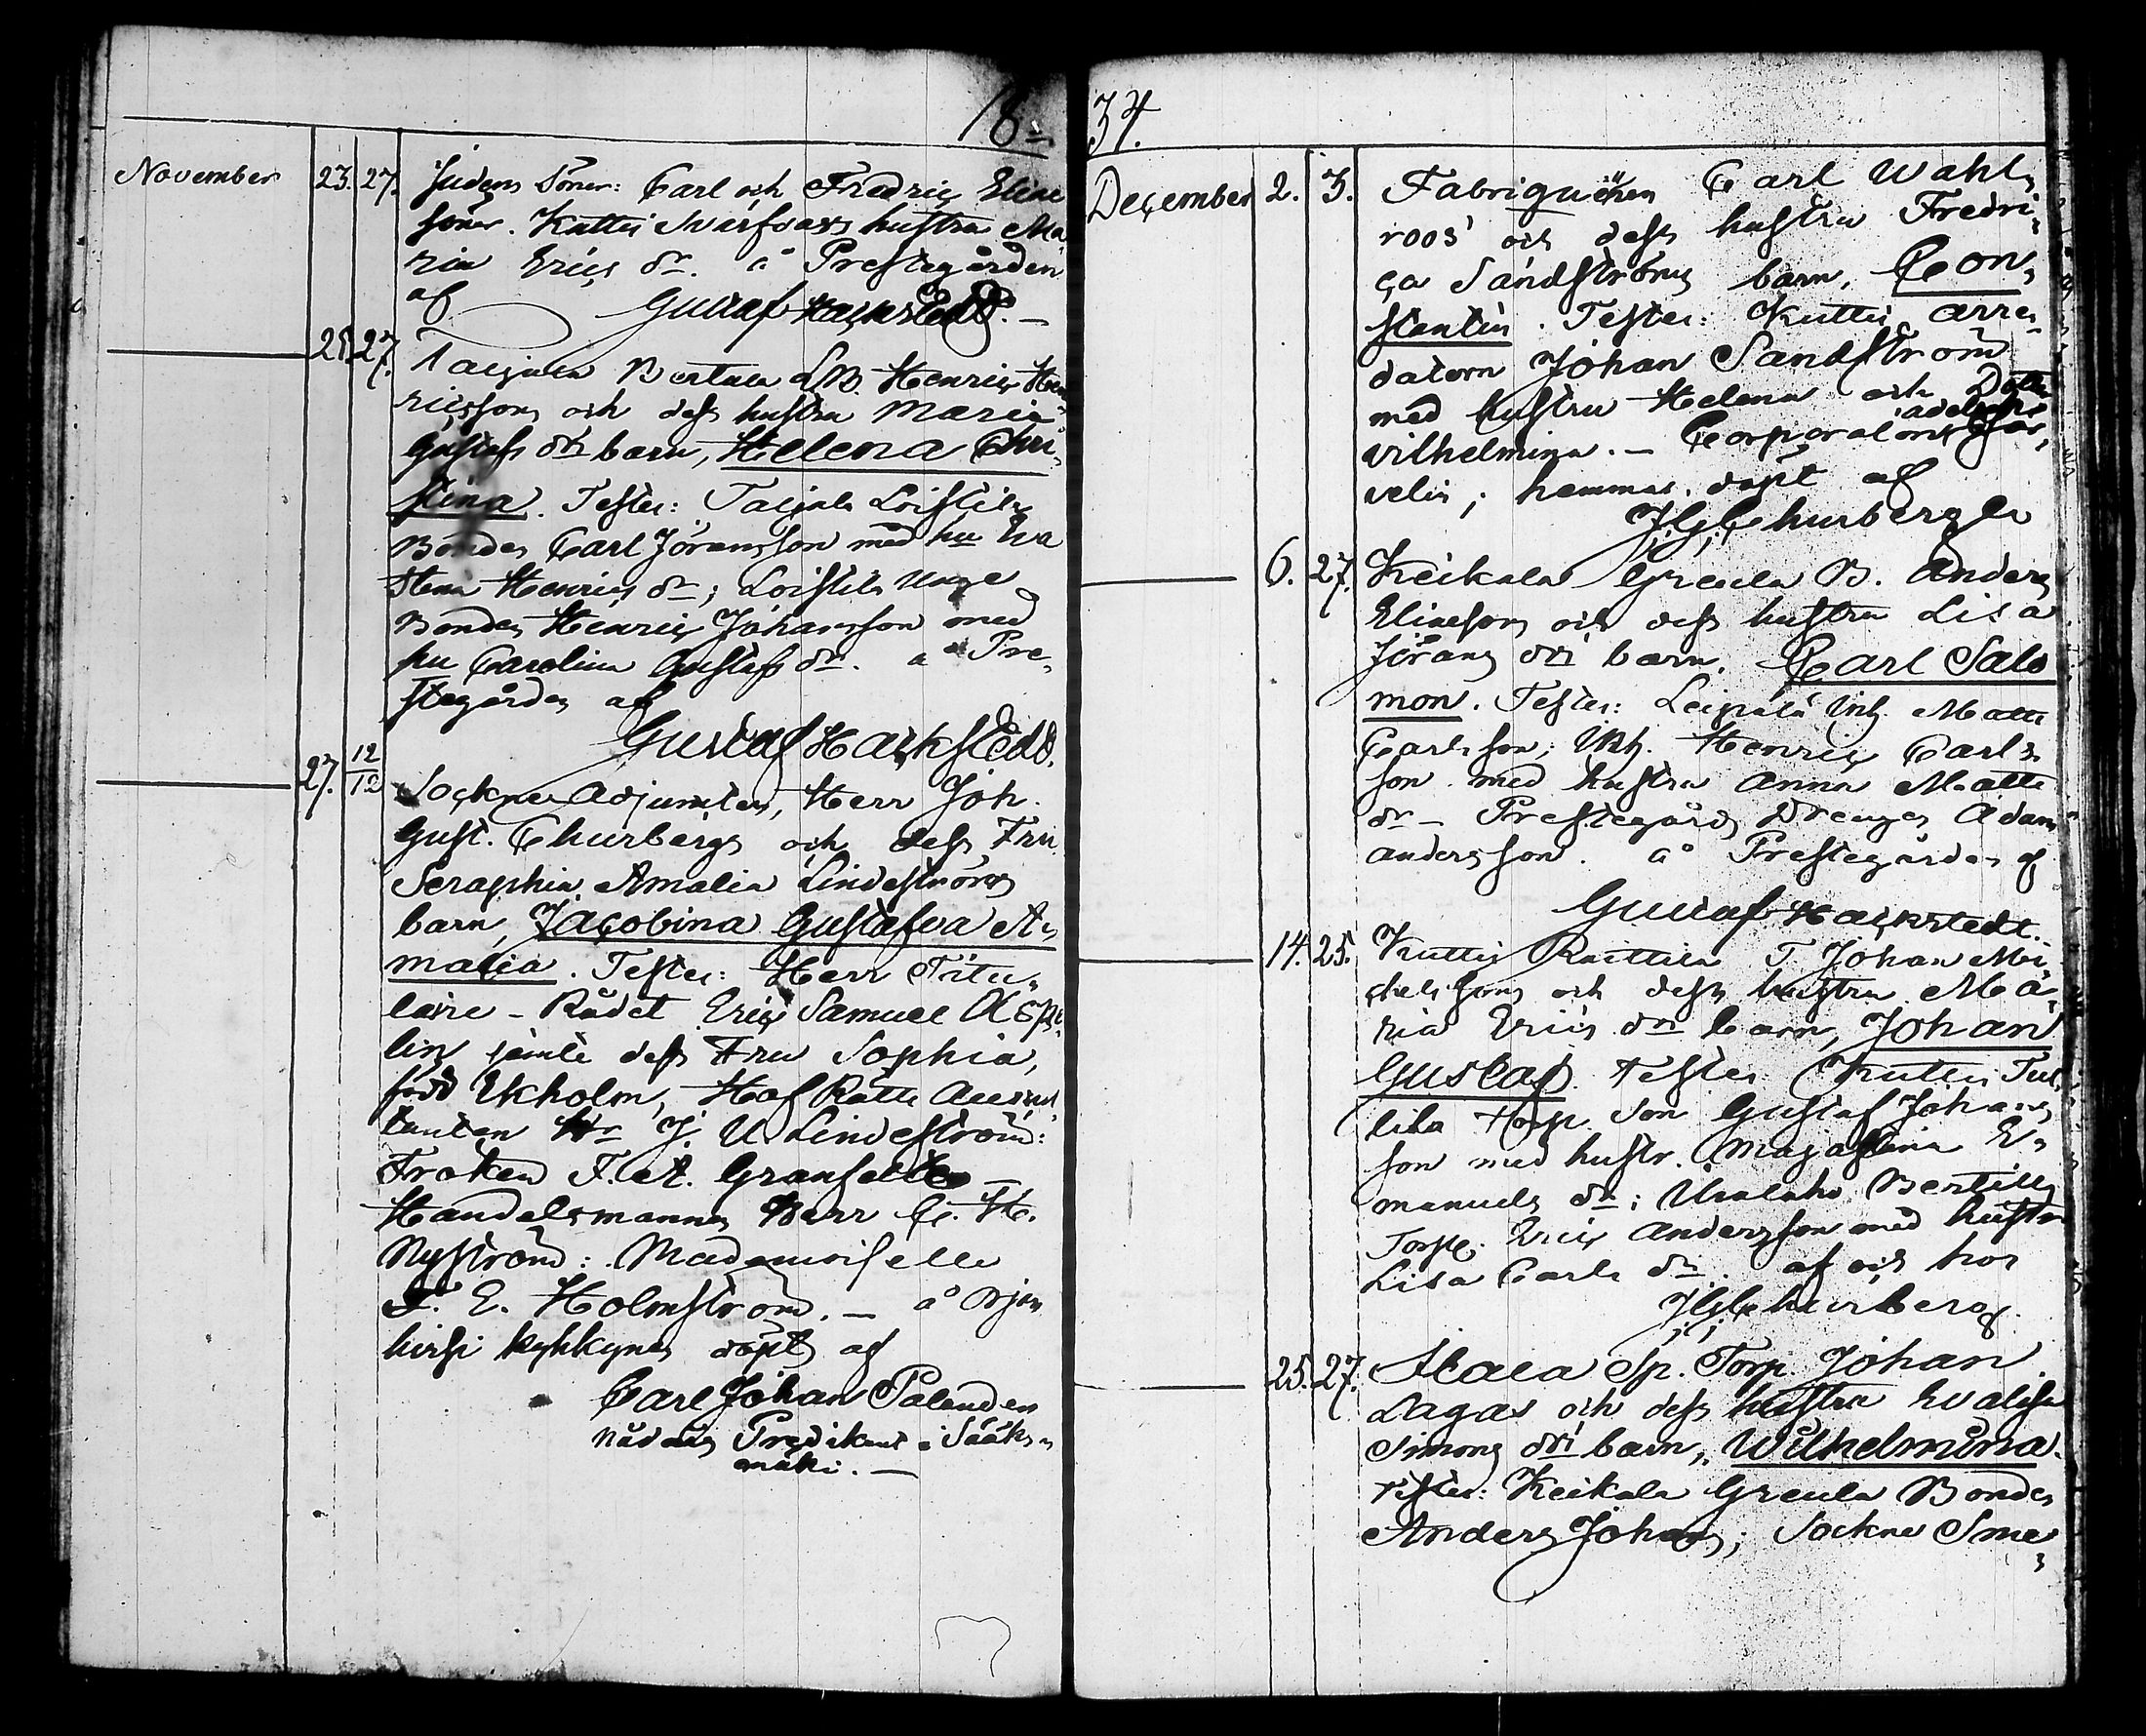 18
34.
November 23. 27. Judens Söner: Carl och Fredric Eliae
söner. Kuttis hustru Ma
ria Erics dr. å Prestegården
af Gustaf Hackstedt. —
25. 27. Bertula Henric Hen
ricssons och dess hustru Maria
Gustafs dr barn, Helena Chri„
stina. Testes: Loistila
Bonden Carl Jöransson med hu Eva
Stina Henrics dr; Loistila unge
Bonden Henric Johansson med
hu Carolina Gustafs dr. å Pre„
stegården af
Gustaf Hackstedt.
27. 12/12 Sockne Adjuncten, Herr Joh.
Gust. Churbergs och dess Fru
Seraphia Amalia Lindeströms
barn, Jacobina Gustafva A„
malia. Testes: Herr Titu„
laire - Rådet Eric Samuel
lin jämte dess Fru Sophia,
född Ekholm, Hof Rätts Auscul
tanten Hr J. U. Lindeström:
Fröken F. A. Granfelt —
Handelsmannen Herr C. H.
Nyström: Mademoiselle
F. E. Holmström. — å
kyhkynen döpt af
Carl Johan Palanden
nådårs Predikant i Sääks„
mäki. —
December 2. 3. Fabriquören Carl Wahl„
roos' och dess hustru Fredri„
ca Sandströms barn, Con„
stantin. Testes: Kuttis Arren„
datorn Johan Sandström
med hustru Helena och Dotter
Vilhelmina. — Corporalens
hemma döpt af
J. G. Churberg
6. 27. Keikala Greula B. Anders
Eliaesons och dess hustru Lisa
Jörans dr barn, Carl Salo
mon. Testes: Inh. Matts
Carlsson; Inh. Henric Carls
son med hustru Anna Matts
dr — Prestegårds Drengen Adam
Andersson. å Prestegården af
Gustaf Hackstedt.
14. 25. Kuttis Raittila T. Johan Mi
chelssons och dess hustru Ma„
ria Erics dr barn, Johan
Gustaf. Testes: Kuttis
Torp. Son Gustaf Johans
son med hustr. Maja Stina E„
manuels dr; Bertills
Torp. Eric Andersson med hustru
Lisa Carls dr. af och hos
J. G. Churberg.
25. 27. Sp. Torp. Johan
Lagas och dess hustru Evalisa
Simons dr barn, Wilhelmina.
Testes: Keikala Greula Bonden
Anders Johans; Sockne Sme„